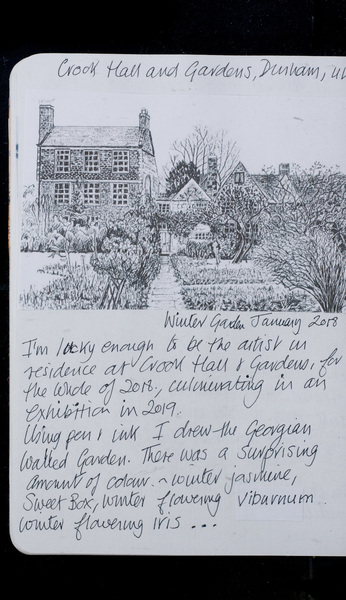 Crook Hall and Gardens, Durham, UK
Winter Garden January 2018
I'm lucky enough to be the artist in
residence at Crook Hall & Gardens, for
the whole of 2018, culminating in an
exhibition in 2019.
Using pen & ink I drew the Georgian
Walled Garden. There was a surprising
amount of colour ~ winter jasmine,
Sweet Box, winter flowering Viburnum
winter flowering Iris ...